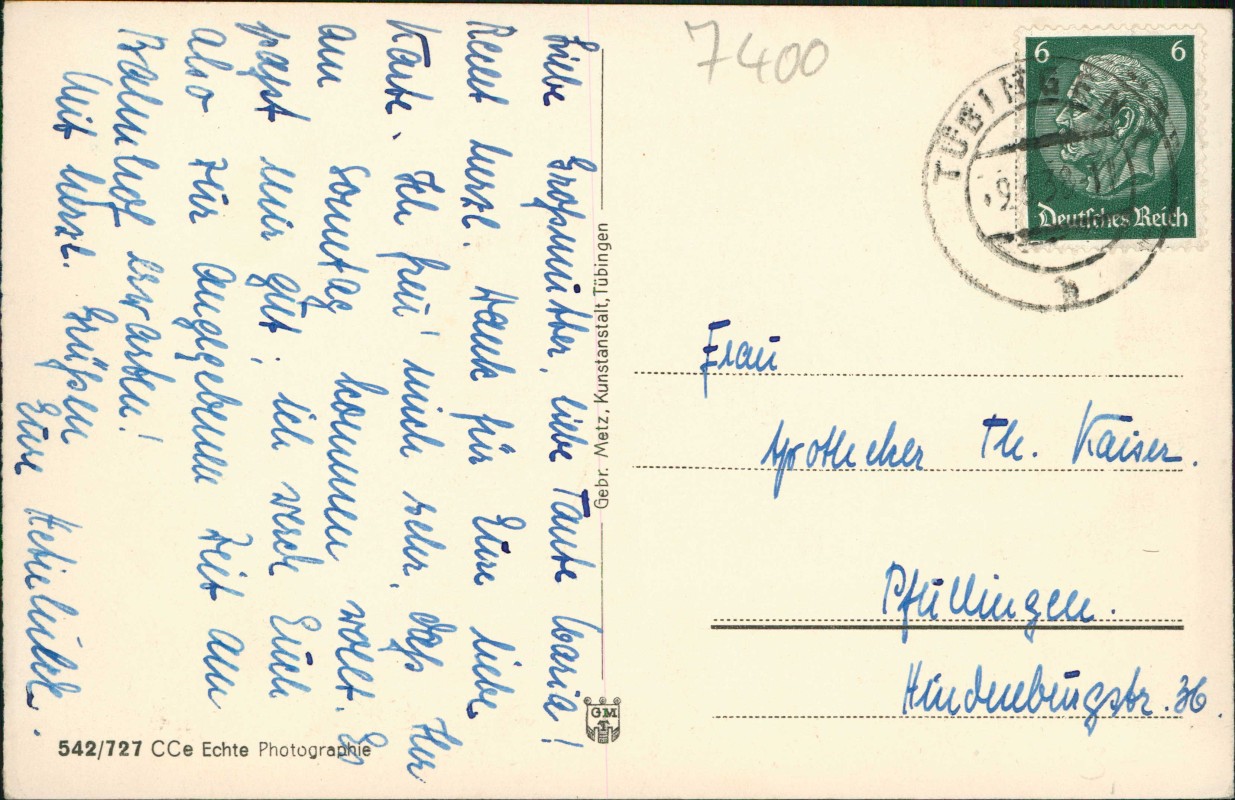 Liebe Großmutter, liebe Tante Maria!
Recht herzl. Dank für Eure liebe
Karte. Ich freu' mich sehr, daß Ihr
am Sonntag kommen wollt. Es
paßt mir gut; ich werde Euch
also zur angegebenen Zeit am
Bahnhof erwarten!
Mit herzl. Grüßen
Eure
7400
6 6
Deutsches Reich
TÜBINGEN
b
Frau
Apotheker Th. Kaiser.
Pfullingen.
Hindenburgstr. 36.
Gebr. Metz, Kunstanstalt, Tübingen
GM
T
542/727 CCe Echte Photographie